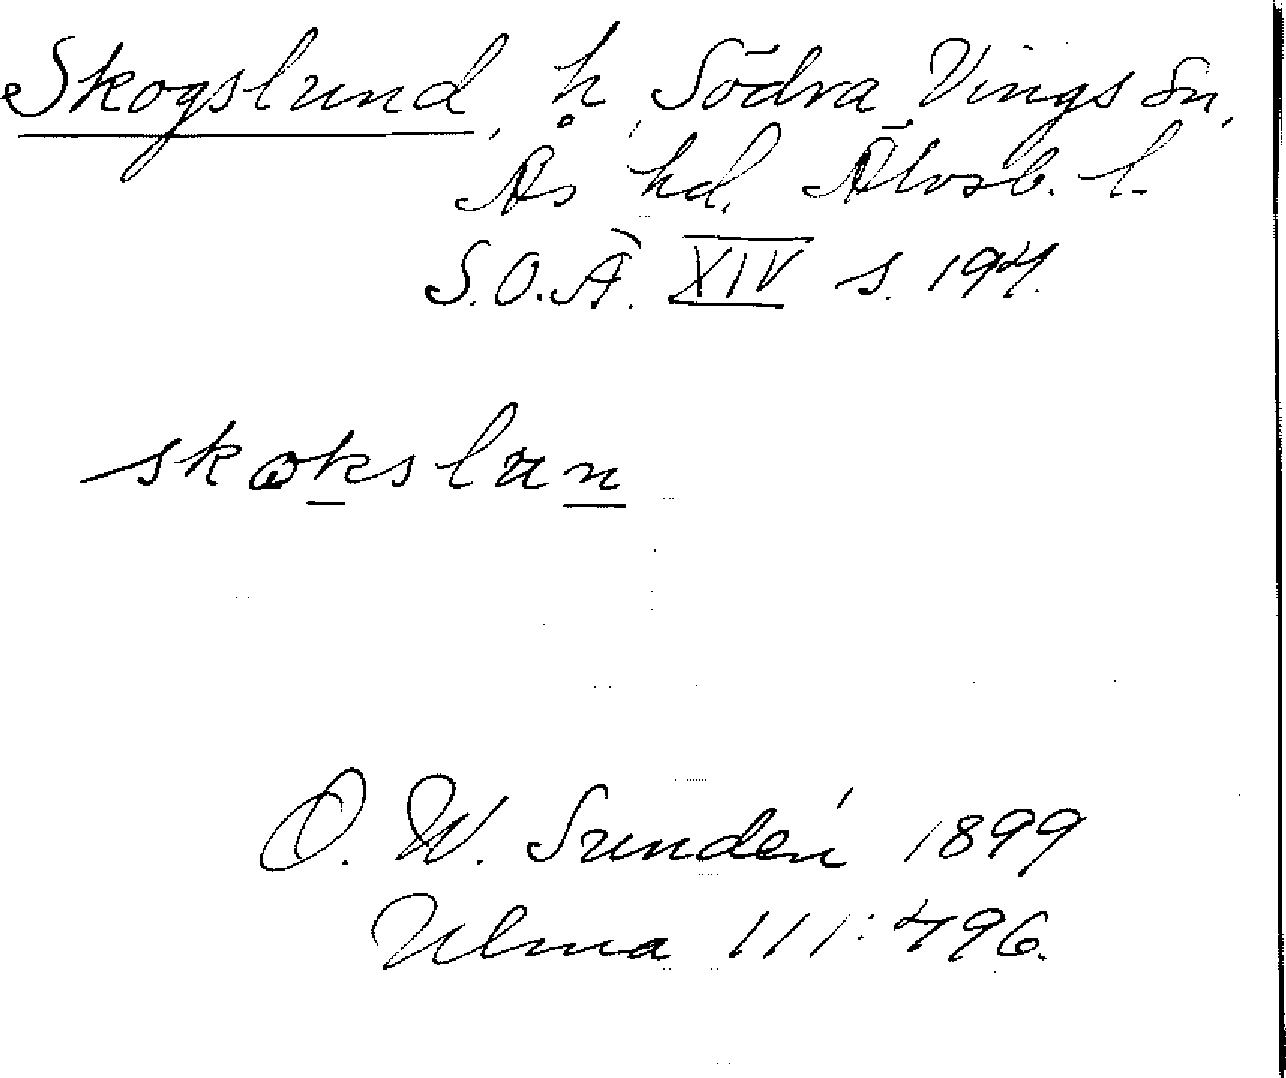 Skogslund, h, Södra Vings sn,
Ås hd. Älvsb. l.
S.O.Ä. XIV s. 194.
skɷkslun
O. W. Sundén 1899
Ulma 111:496.